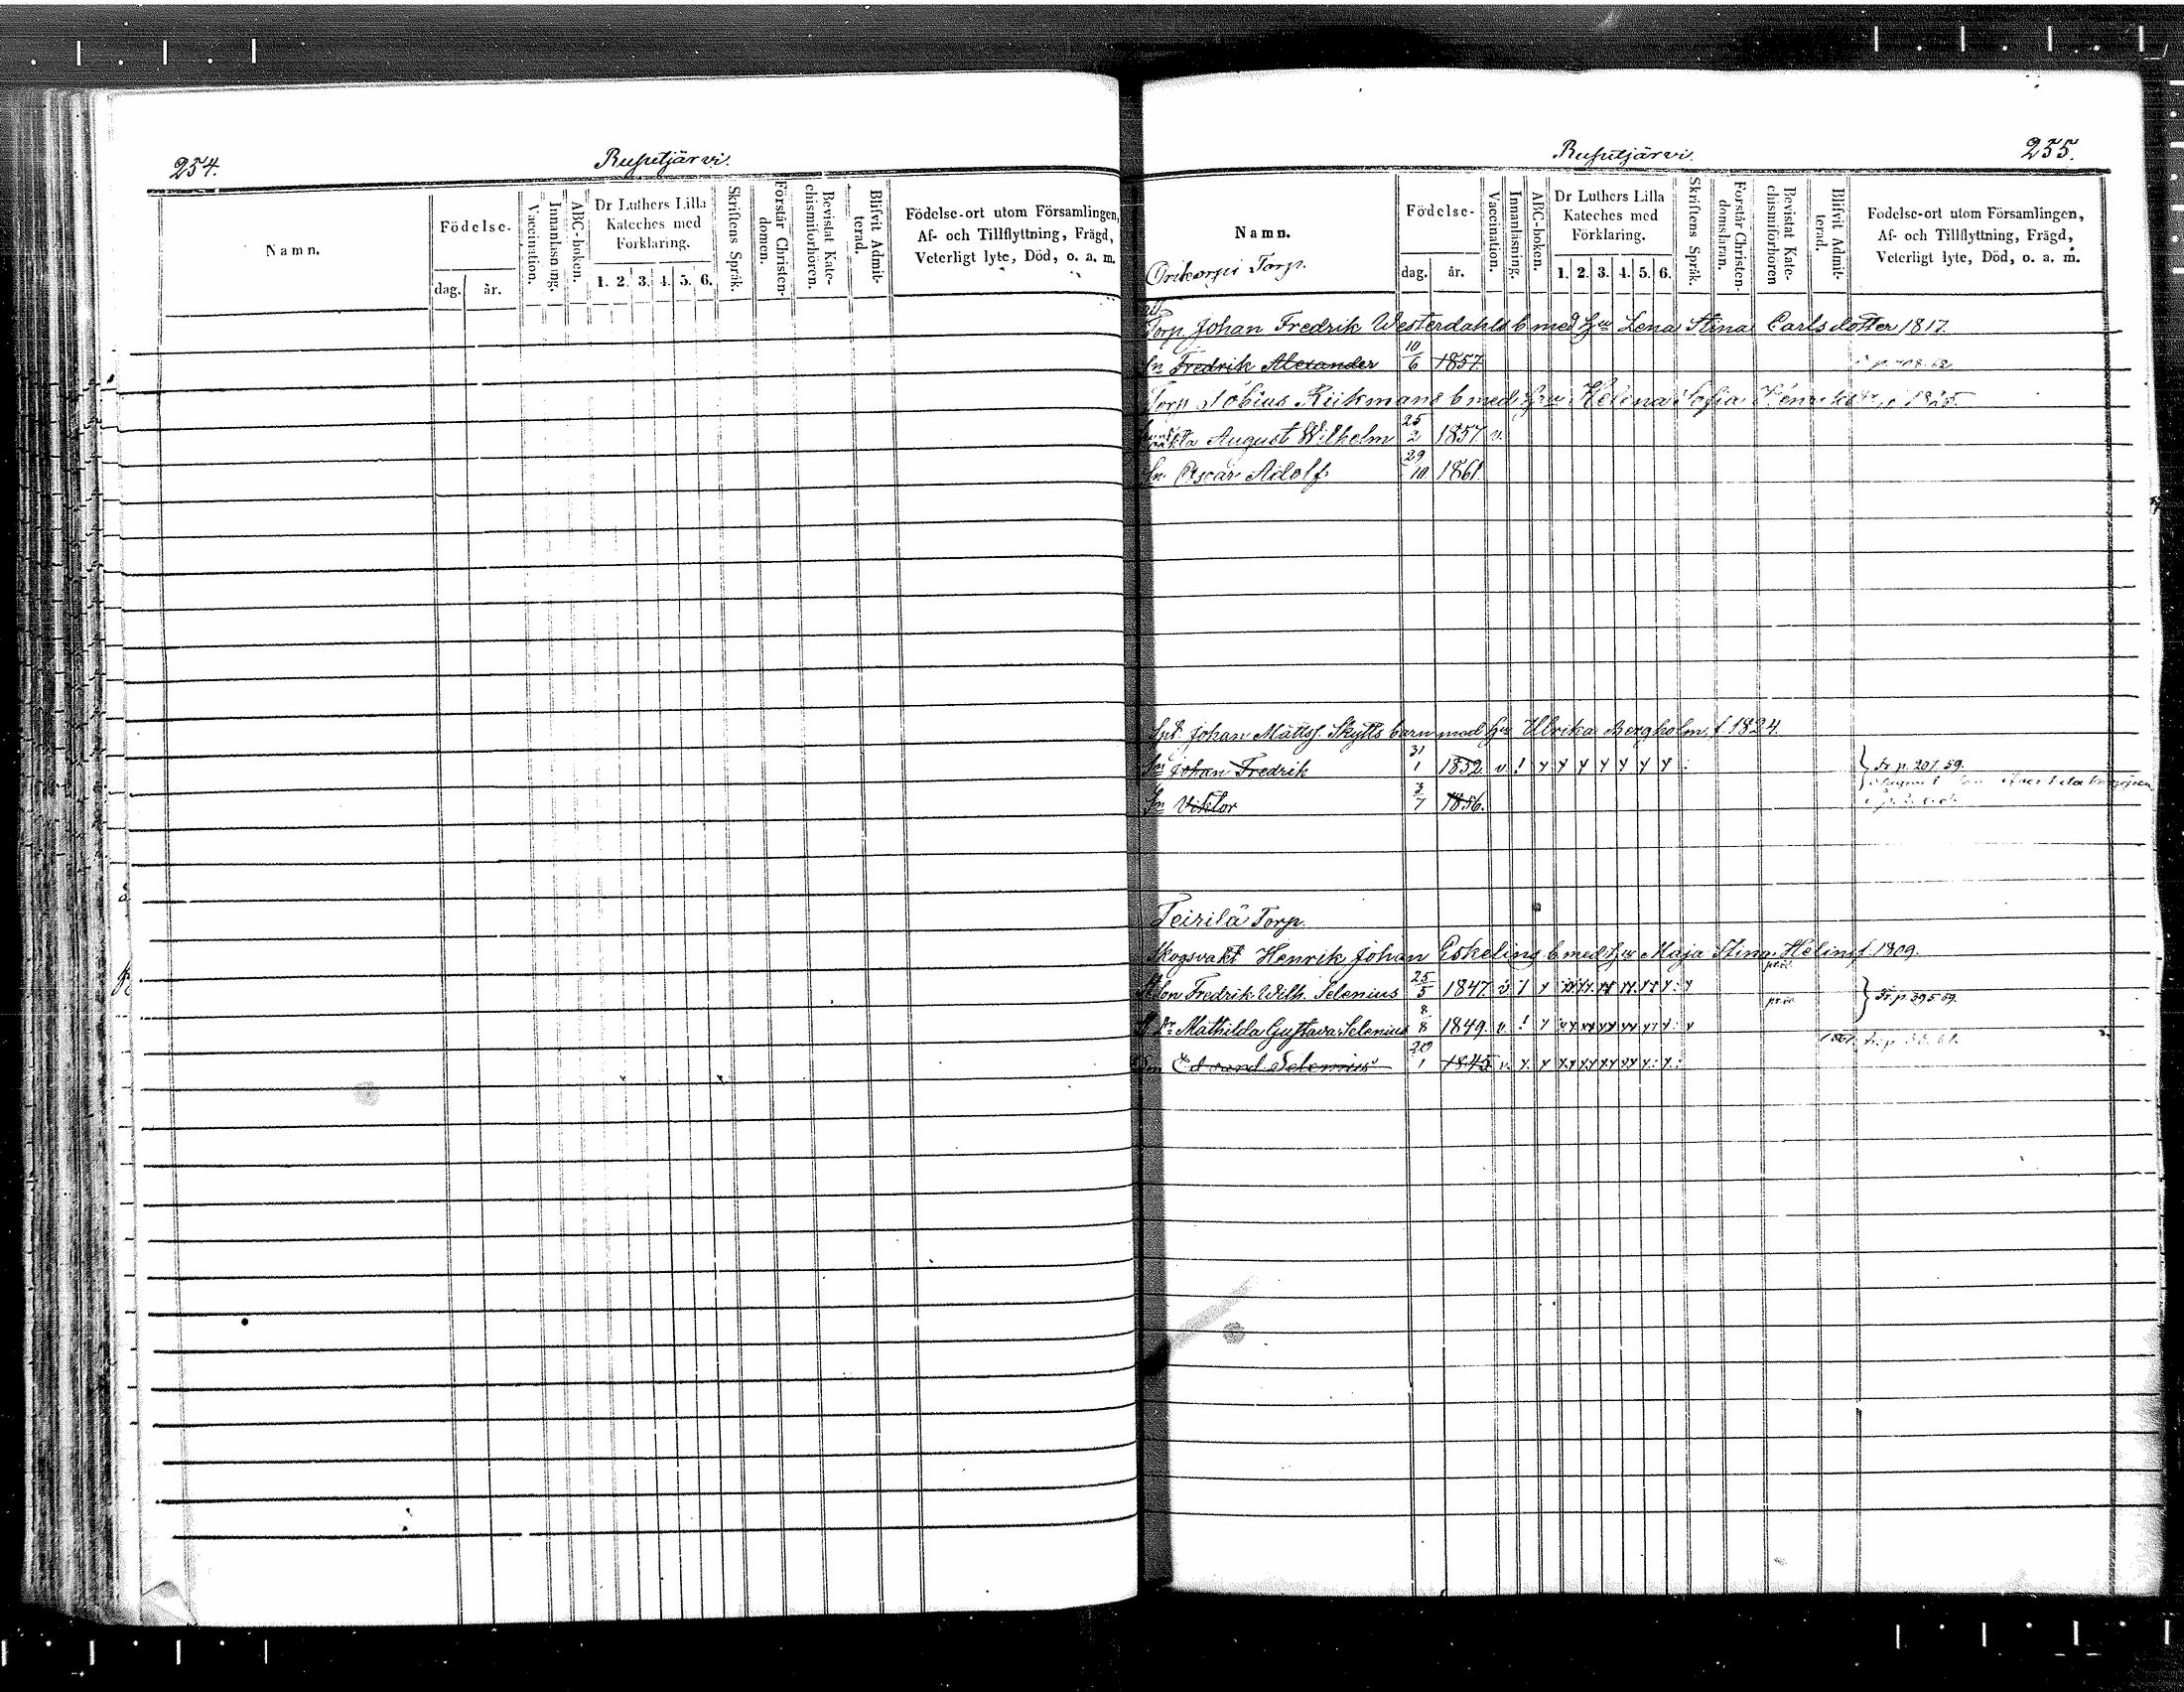 254.
Rusutjärvi.
Namn.
Födelse.
dag.
år.
Vaccination.
Innanläsning.
ABC-boken.
Dr Luthers Lilla
Kateches med
Förklaring.
1. 2. 3. 4. 5. 6.
Skriftens Språk.
Förstår Christen-
domen.
Bevistat Kate-
chismiförhören.
Blifvit Admit-
terad.
Födelse-ort utom Församlingen,
Af- och Tillflyttning, Frägd,
Veterligt lyte, Död, o. a. m.
Rusutjärvi.
255.
Namn.
Födelse-
dag.
år.
Vaccination.
Innanläsning.
ABC-boken.
Dr Luthers Lilla
Kateches med
Förklaring.
1. 2. 3. 4. 5. 6.
Skriftens Språk.
Förstår Christen-
domsläran.
Bevistat Kate-
chismiförhören
Blifvit Admit-
terad.
Födelse-ort utom Församlingen,
Af- och Tillflyttning, Frägd,
Veterligt lyte, Död, o. a. m.
Orikorpi Torp.
Torp. Johan Fredrik Westerdahls b med h:u Lena Stina Carlsdotter 1817.
Sn Fredrik Alexander 10/6 1857.
Torp Tobias Riikmans b med h:u Helena Sofia 1825.
August Wilhelm 25/2 1857 v.
Sn Oscar Adolf 29/10 1861.
Johan Mattss. Skytts barn med h:u Ulrika Bergholm f. 1824.
Sn Johan Fredrik 31/1 1852 v ! y y y y y y y : fr. p. 207. 59.
Sn Viktor 3/7 1856.
Teirilä Torp.
Skogsvakt Henrik Johan Eskelins b med h:u Maja Stina Helin f. 1809.
Son Fredrik Wilh. Selenius 25/5 1847. v. ! y fr. p. 395 59.
Dr Mathilda Gustava Selenius 8/8 1849. v. ! y
Son Edvard Selenius 20/1 1845 v. y. y